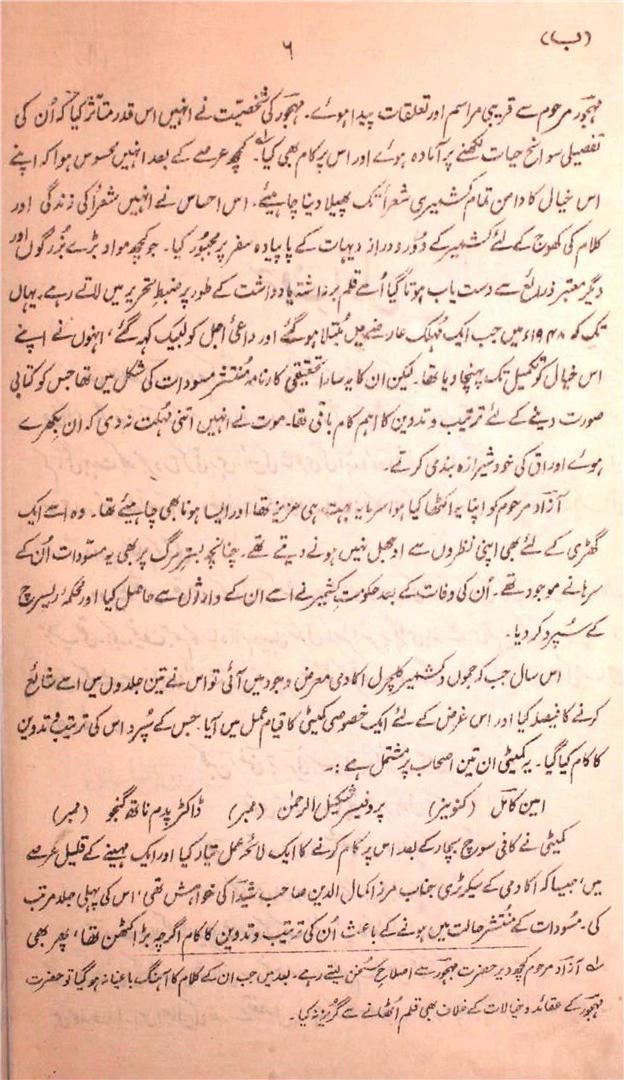 (ب)
٦
مہجور مرحوم سے قریبی مراسم اور تعلقات پیدا ہوئے۔ مہجور کی شخصیت نے انہیں اس قدر متاثر کیا کہ اُن کی
تفصیلی سوانح حیات لکھنے پر آمادہ ہوئے اور اس پر کام بھی کیا۔ کچھ عرصے کے بعد انہیں محسوس ہوا کہ اپنے
اس خیال کا دامن تمام کشمیری شعراً تک پھیلا دینا چاہیئے۔ اس احساس نے انہیں شعراً کی زندگی اور
کلام کی کھوج کے لئے کشمیر کے دُور دراز دیہات کے پا پیادہ سفر پر مجبُور کیا۔ جو کچھ مواد بڑے بُزرگوں اور
دیگر معتبر ذرایع سے دست یاب ہوتا گیا اُسے قلم برداشتہ یادداشت کے طور پر ضبطِ تحریر میں لاتے رہے۔ یہاں
تک کہ ۱۹۴۸ء میں جب ایک مُہلک عارضے میں مُبتلا ہو گئے اور داعئ اجل کو لبیک کہہ گئے، انہوں نے اپنے
اس خیال کو تکمیل تک پہنچا دیا تھا۔ لیکن ان کا یہ سارا تحقیقی کارنامہ مُنتشر مسودات کی شکل میں تھا جس کو کتابی
صورت دینے کے لئے ترتیب و تدوین کا اہم کام باقی تھا۔ موت نے انہیں اتنی مُہلت نہ دی کہ ان بکھرے
ہوئے اوراق کی خود شیرازہ بندی کرتے۔
آزاد مرحوم کو اپنا یہ اکٹھا کیا ہوا سرمایہ بہت ہی عزیز تھا اور ایسا ہونا بھی چاہیئے تھا۔ وہ اسے ایک
گھڑی کے لئے بھی اپنی نظروں سے اوجھل نہیں ہونے دیتے تھے۔ چنانچہ بسترِ مرگ پر بھی یہ مسّودات اُن کے
سرہانے موجود تھے۔ اُن کی وفات کے بعد حکومتِ کشمیر نے اسے ان کے وارثوں سے حاصل کیا اور محکمۂ ریسرچ
کے سُپرد کر دیا۔
اس سال جب کہ جموں و کشمیر کلچرل اکادمی معرضِ وجود میں آئی تو اس نے تین جلدوں میں اسے شایع
کرنے کا فیصلہ کیا اور اس غرض کے لئے ایک خصوصی کمیٹی کا قیام عمل میں آیا۔ جس کے سُپرد اس کی ترتیب و تدوین
کا کام کیا گیا۔ یہ کمیٹی ان تین اصحاب پر مشتمل ہے :۔
امین کامل (کنوینر) پروفیسر شکیل الرحمٰن (ممبر) ڈاکٹر پدم ناتھ گنجو (ممبر)
کمیٹی نے کافی سوچ بچار کے بعد اس پر کام کرنے کا ایک لائحہ عمل تیار کیا اور ایک مہینے کے قلیل عرصے
میں، جیسا کہ اکادمی کے سیکرٹری جناب مرزا کمال الدین صاحب شیدا کی خواہش تھی، اس کی پہلی جلد مرتب
کی۔ مسّودات کے مُنتشر حالت میں ہونے کے باعث اُن کی ترتیب و تدوین کا کام اگرچہ بڑا کٹھن تھا، پھر بھی
لے آزاد مرحوم کچھ دیر حضرت مہجور سے اصلاحِ سُخن لیتے رہے۔ بعد میں جب ان کے کلام کا آہنگ باغیانہ ہو گیا تو حضرت
مہجور کے عقائد و خیالات کے خلاف بھی قلم اُٹھانے سے گریز نہ کیا۔